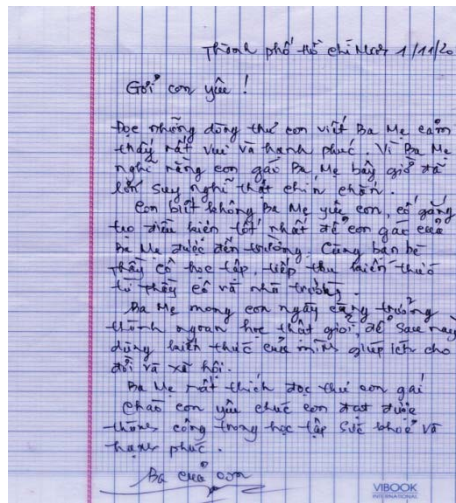 Thành phố Hồ Chí Minh 1/11/20
Gởi con yêu !
Đọc những dòng thư con viết Ba Mẹ cảm
thấy rất vui và hạnh phúc. Vì Ba Mẹ
nghĩ rằng con gái Ba Mẹ bây giờ đã
lớn suy nghĩ thật chín chắn.
Con biết không Ba Mẹ yêu con, cố gắng
tạo điều kiện tốt nhất để con gái của
Ba Mẹ được đến trường. Cùng bạn bè
thầy cô học tập, tiếp thu kiến thức
từ thầy cô và nhà trường.
Ba Mẹ mong con ngày càng trưởng
thành ngoan học thật giỏi để sau này
dùng kiến thức của mình giúp ích cho
đời và xã hội.
Ba Mẹ rất thích đọc thư con gái
Chào con yêu chúc con đạt được
thành công trong học tập sức khoẻ và
hạnh phúc.
Ba của con
VIBOOK
INTERNATIONAL